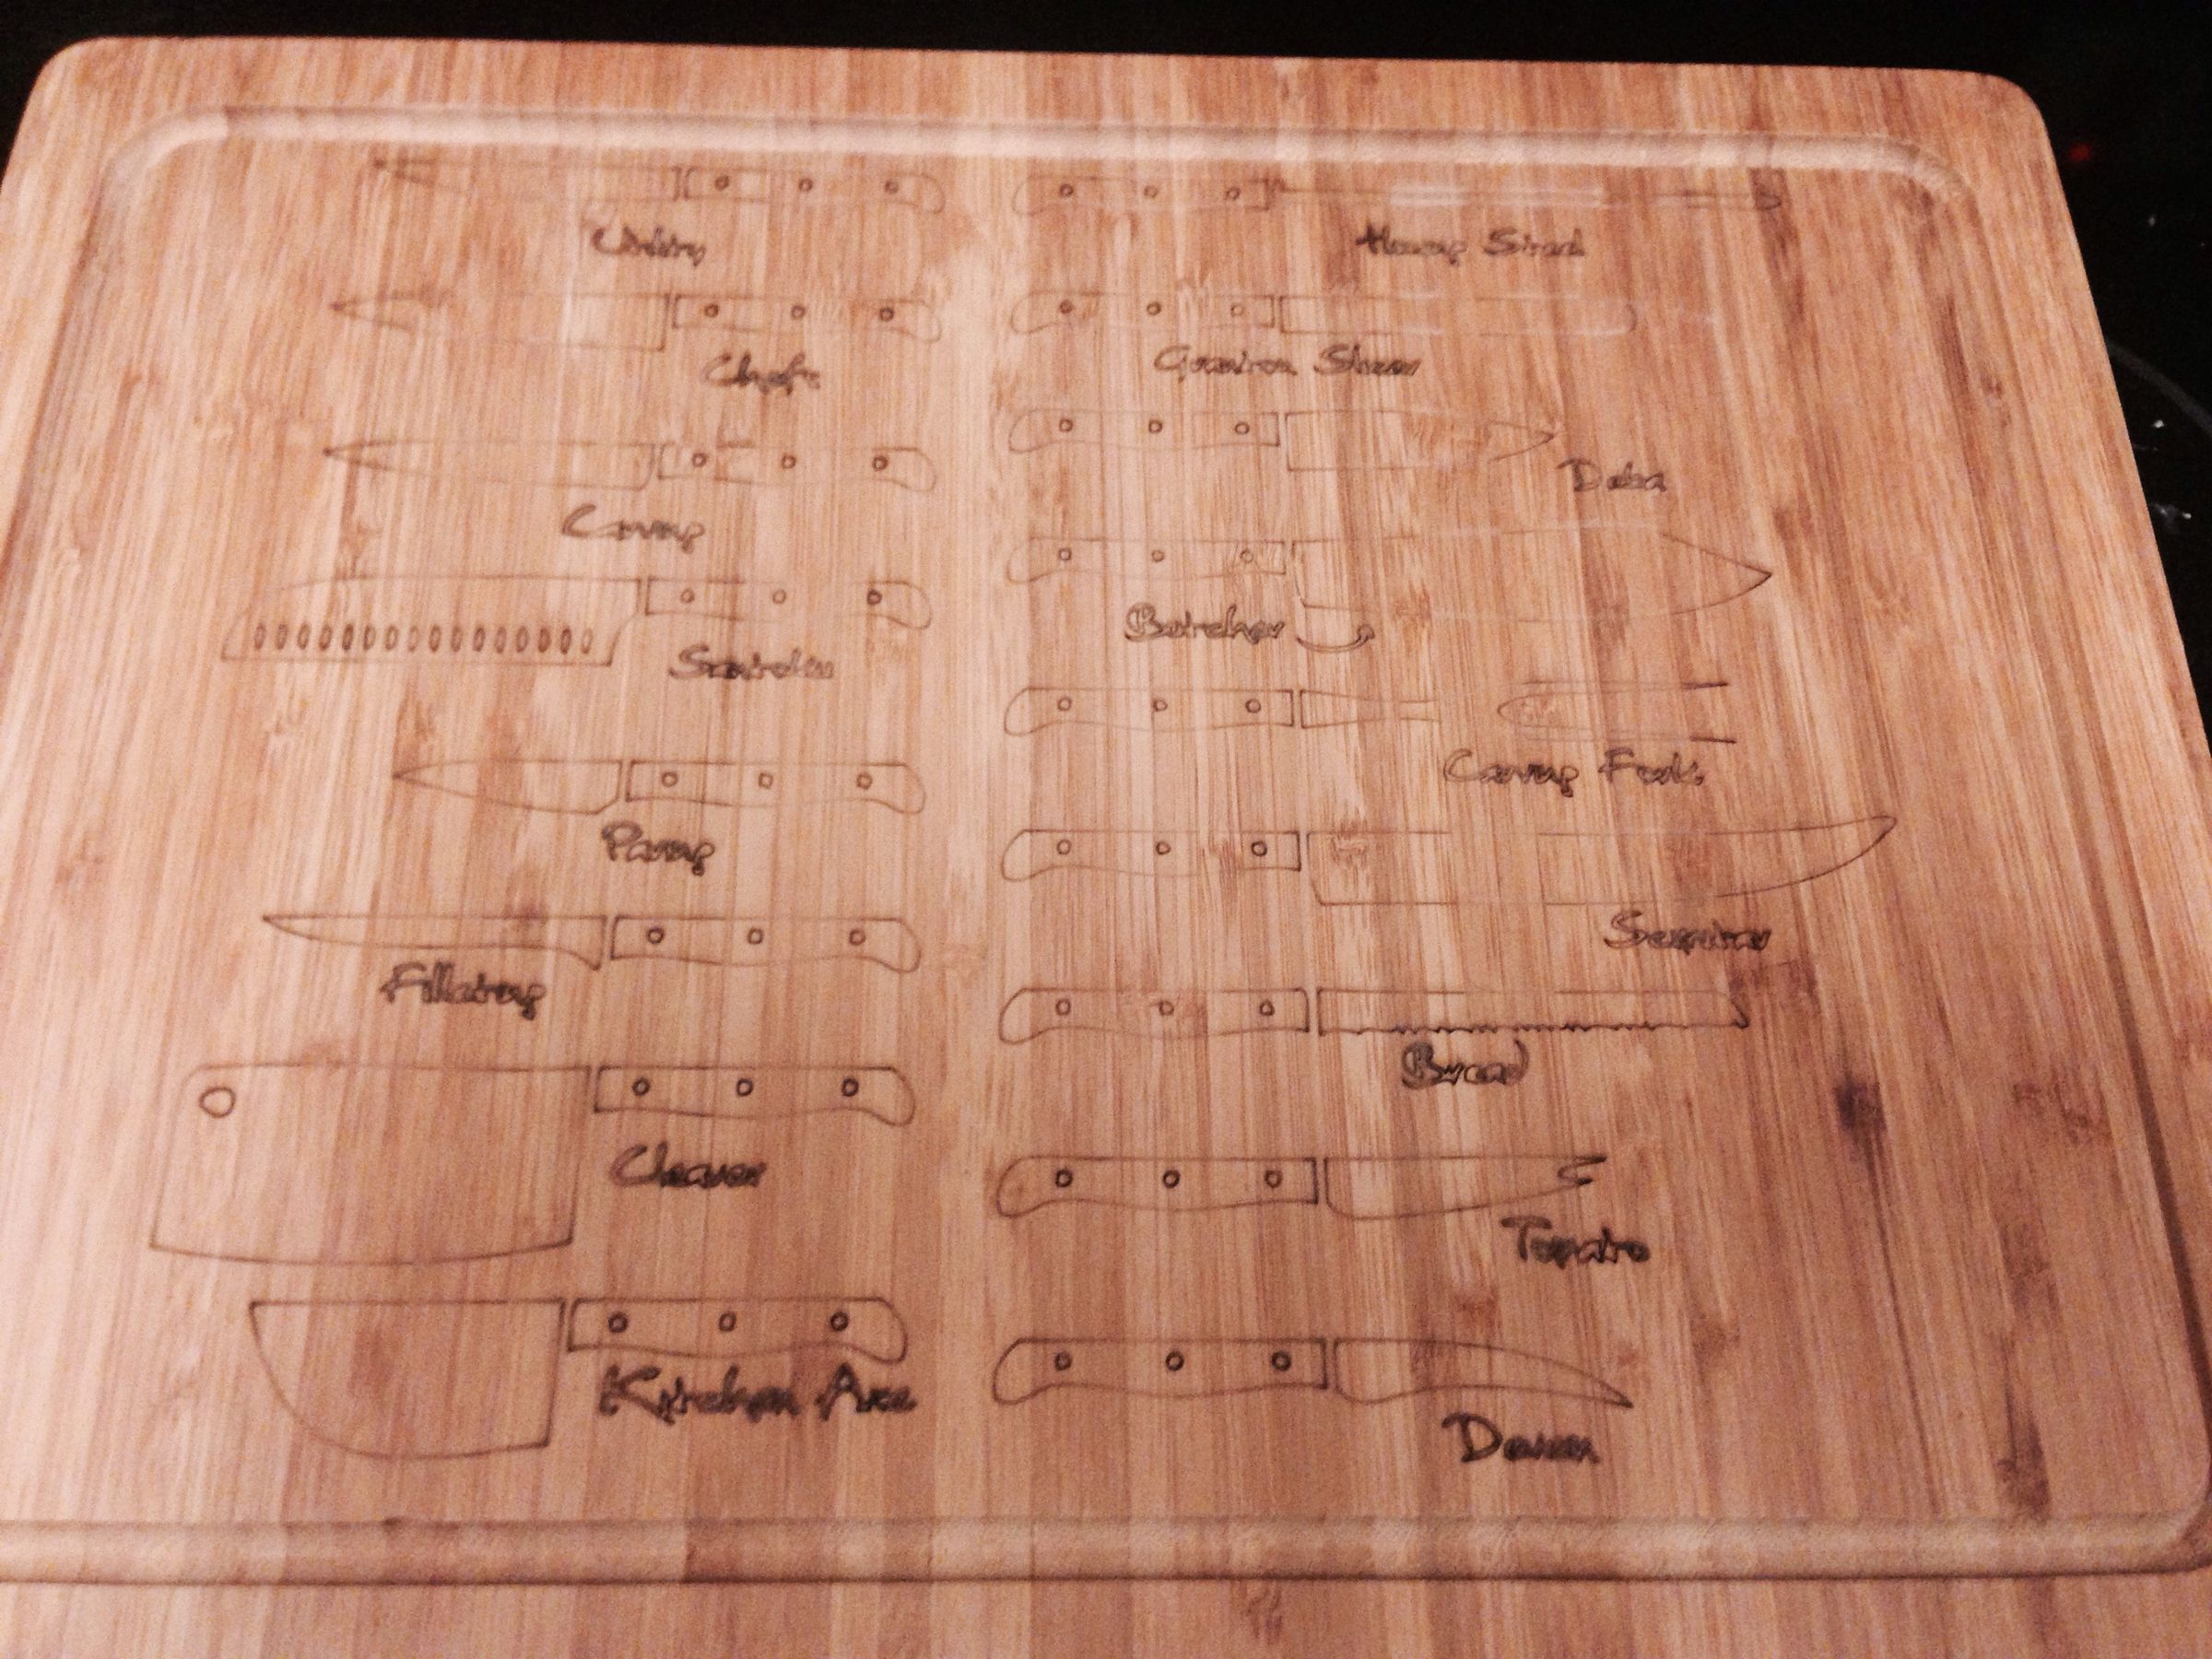 Utility
Chefs
Carving
Santoku
Paring
Filleting
Cleaver
Kitchen Axe
Honing Steel
Granton Slicer
Deba
Butcher
Carving Fork
Scimitar
Bread
Tomato